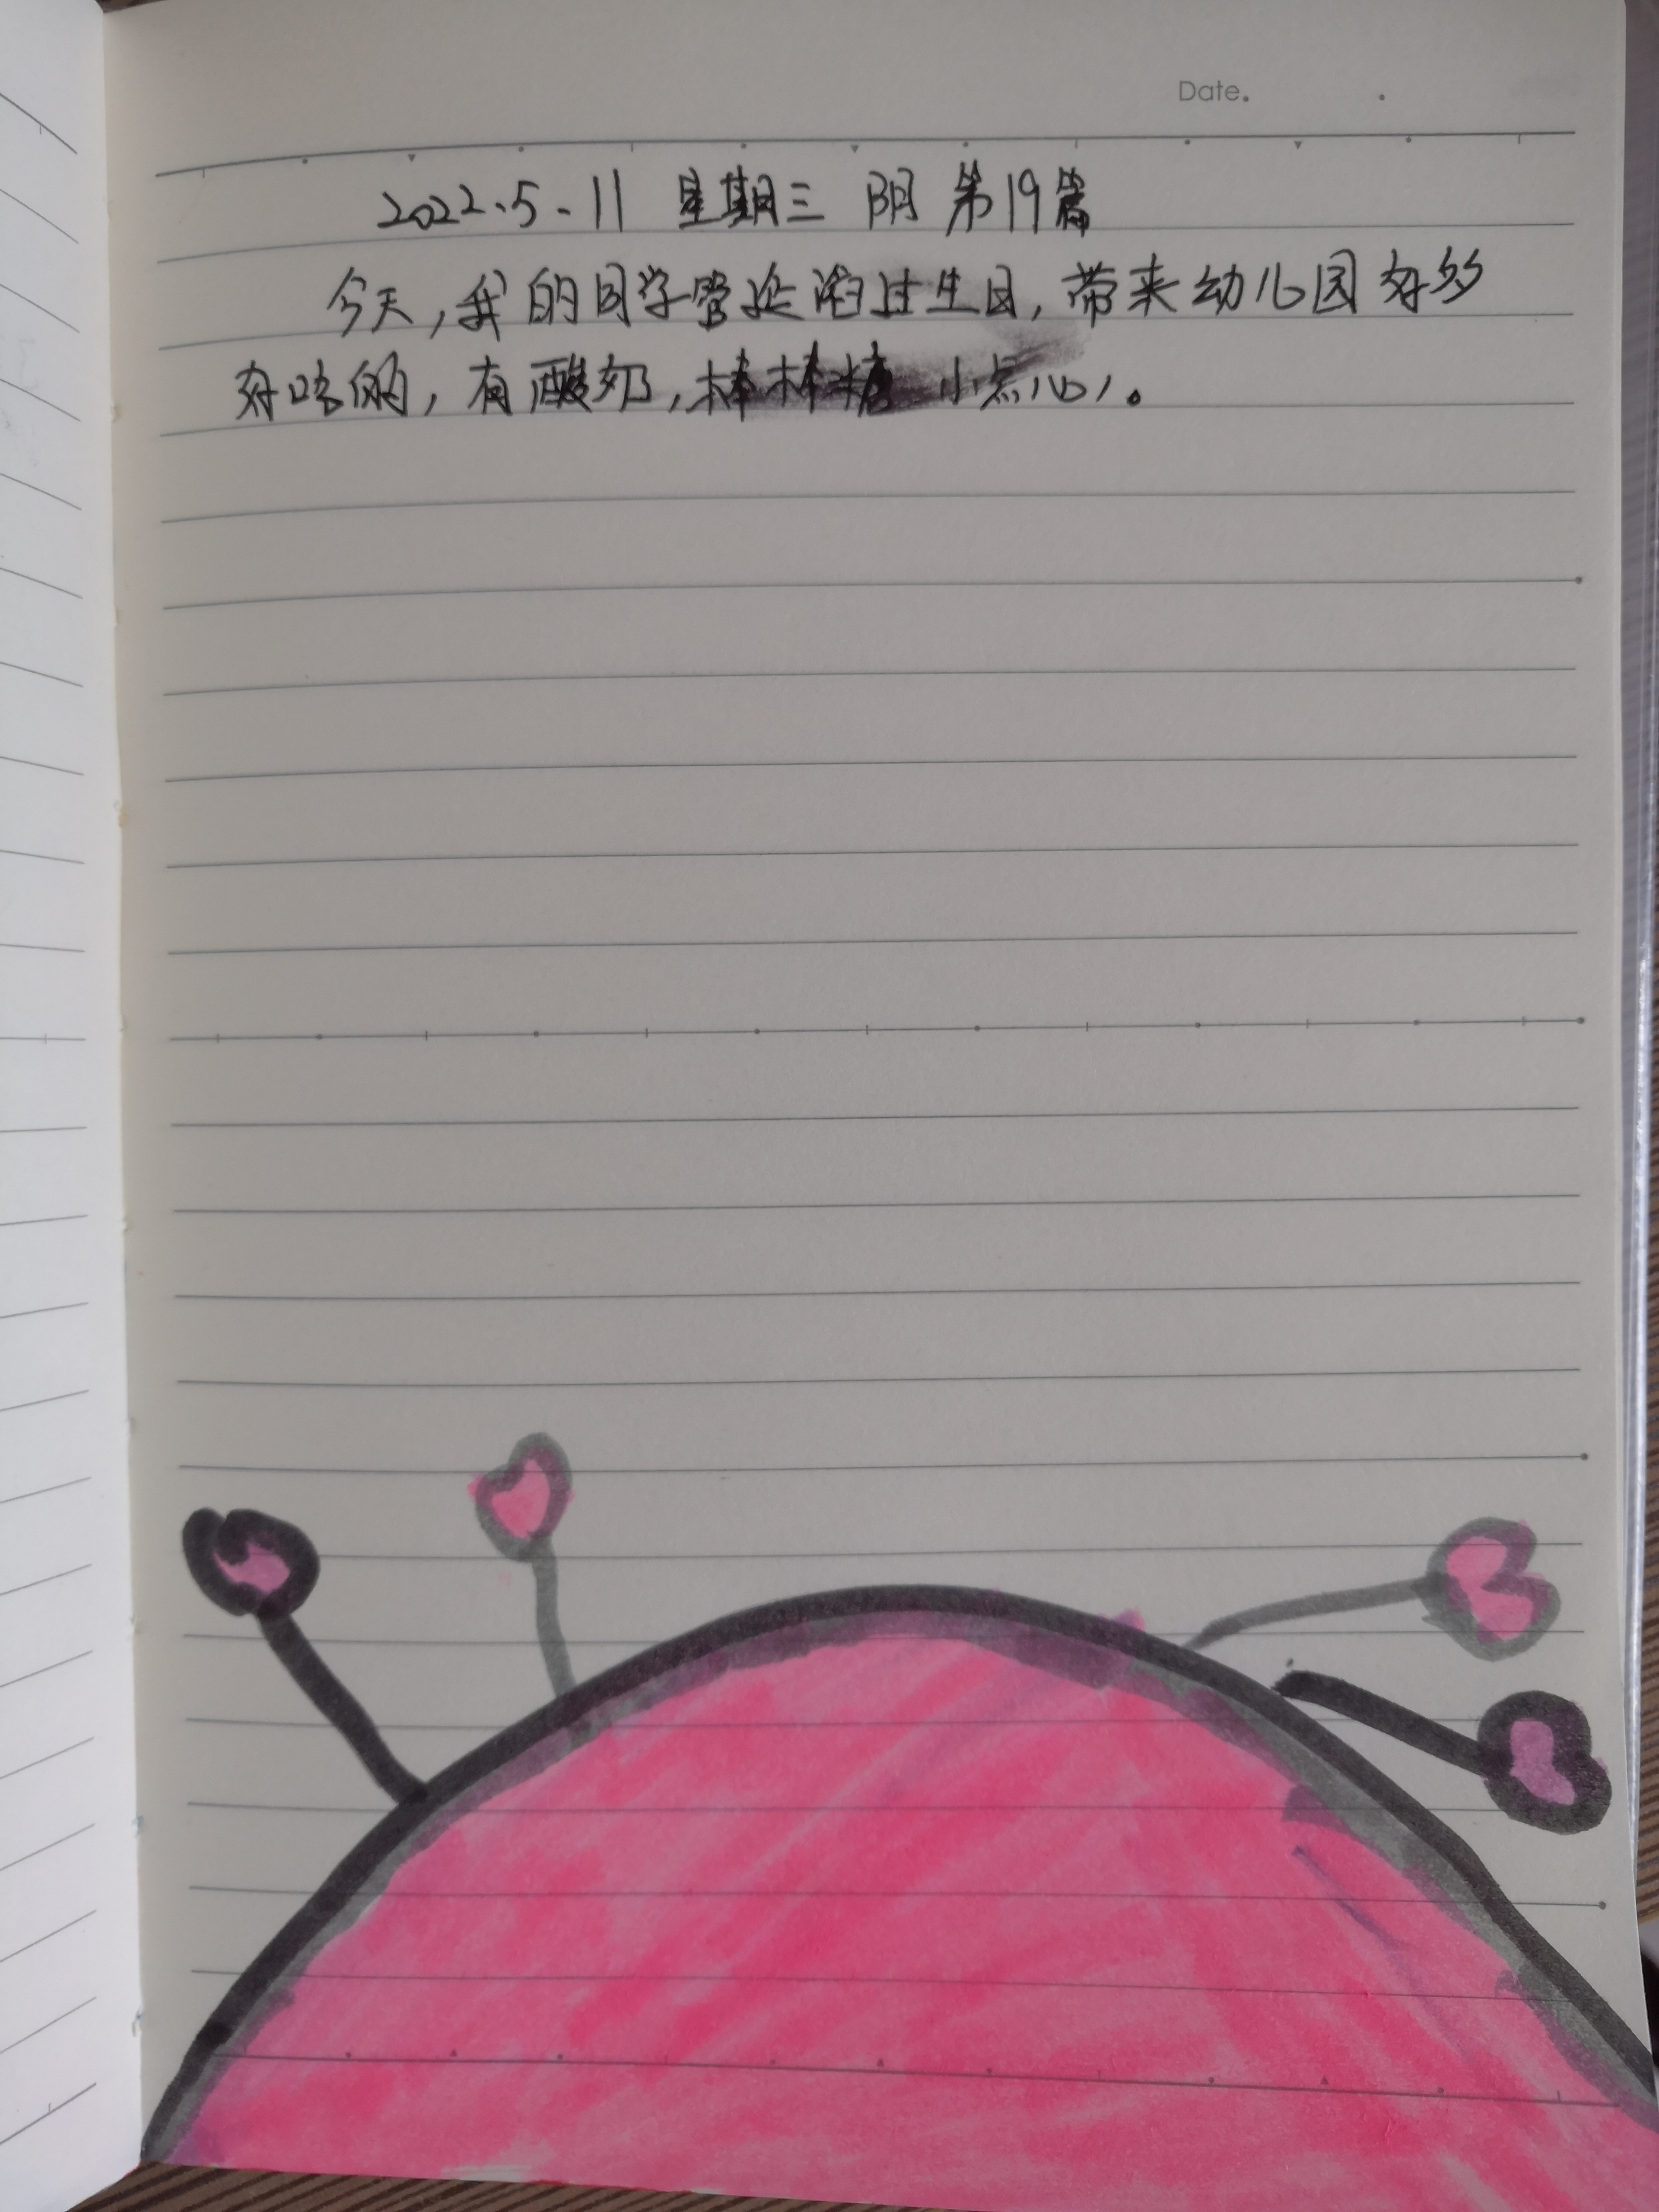 Date.
2022.5.11 星期三 阴 第19篇
今天,我的同学管延滔过生日,带来幼儿园好多
好吃的,有酸奶,棒棒糖 小点心。